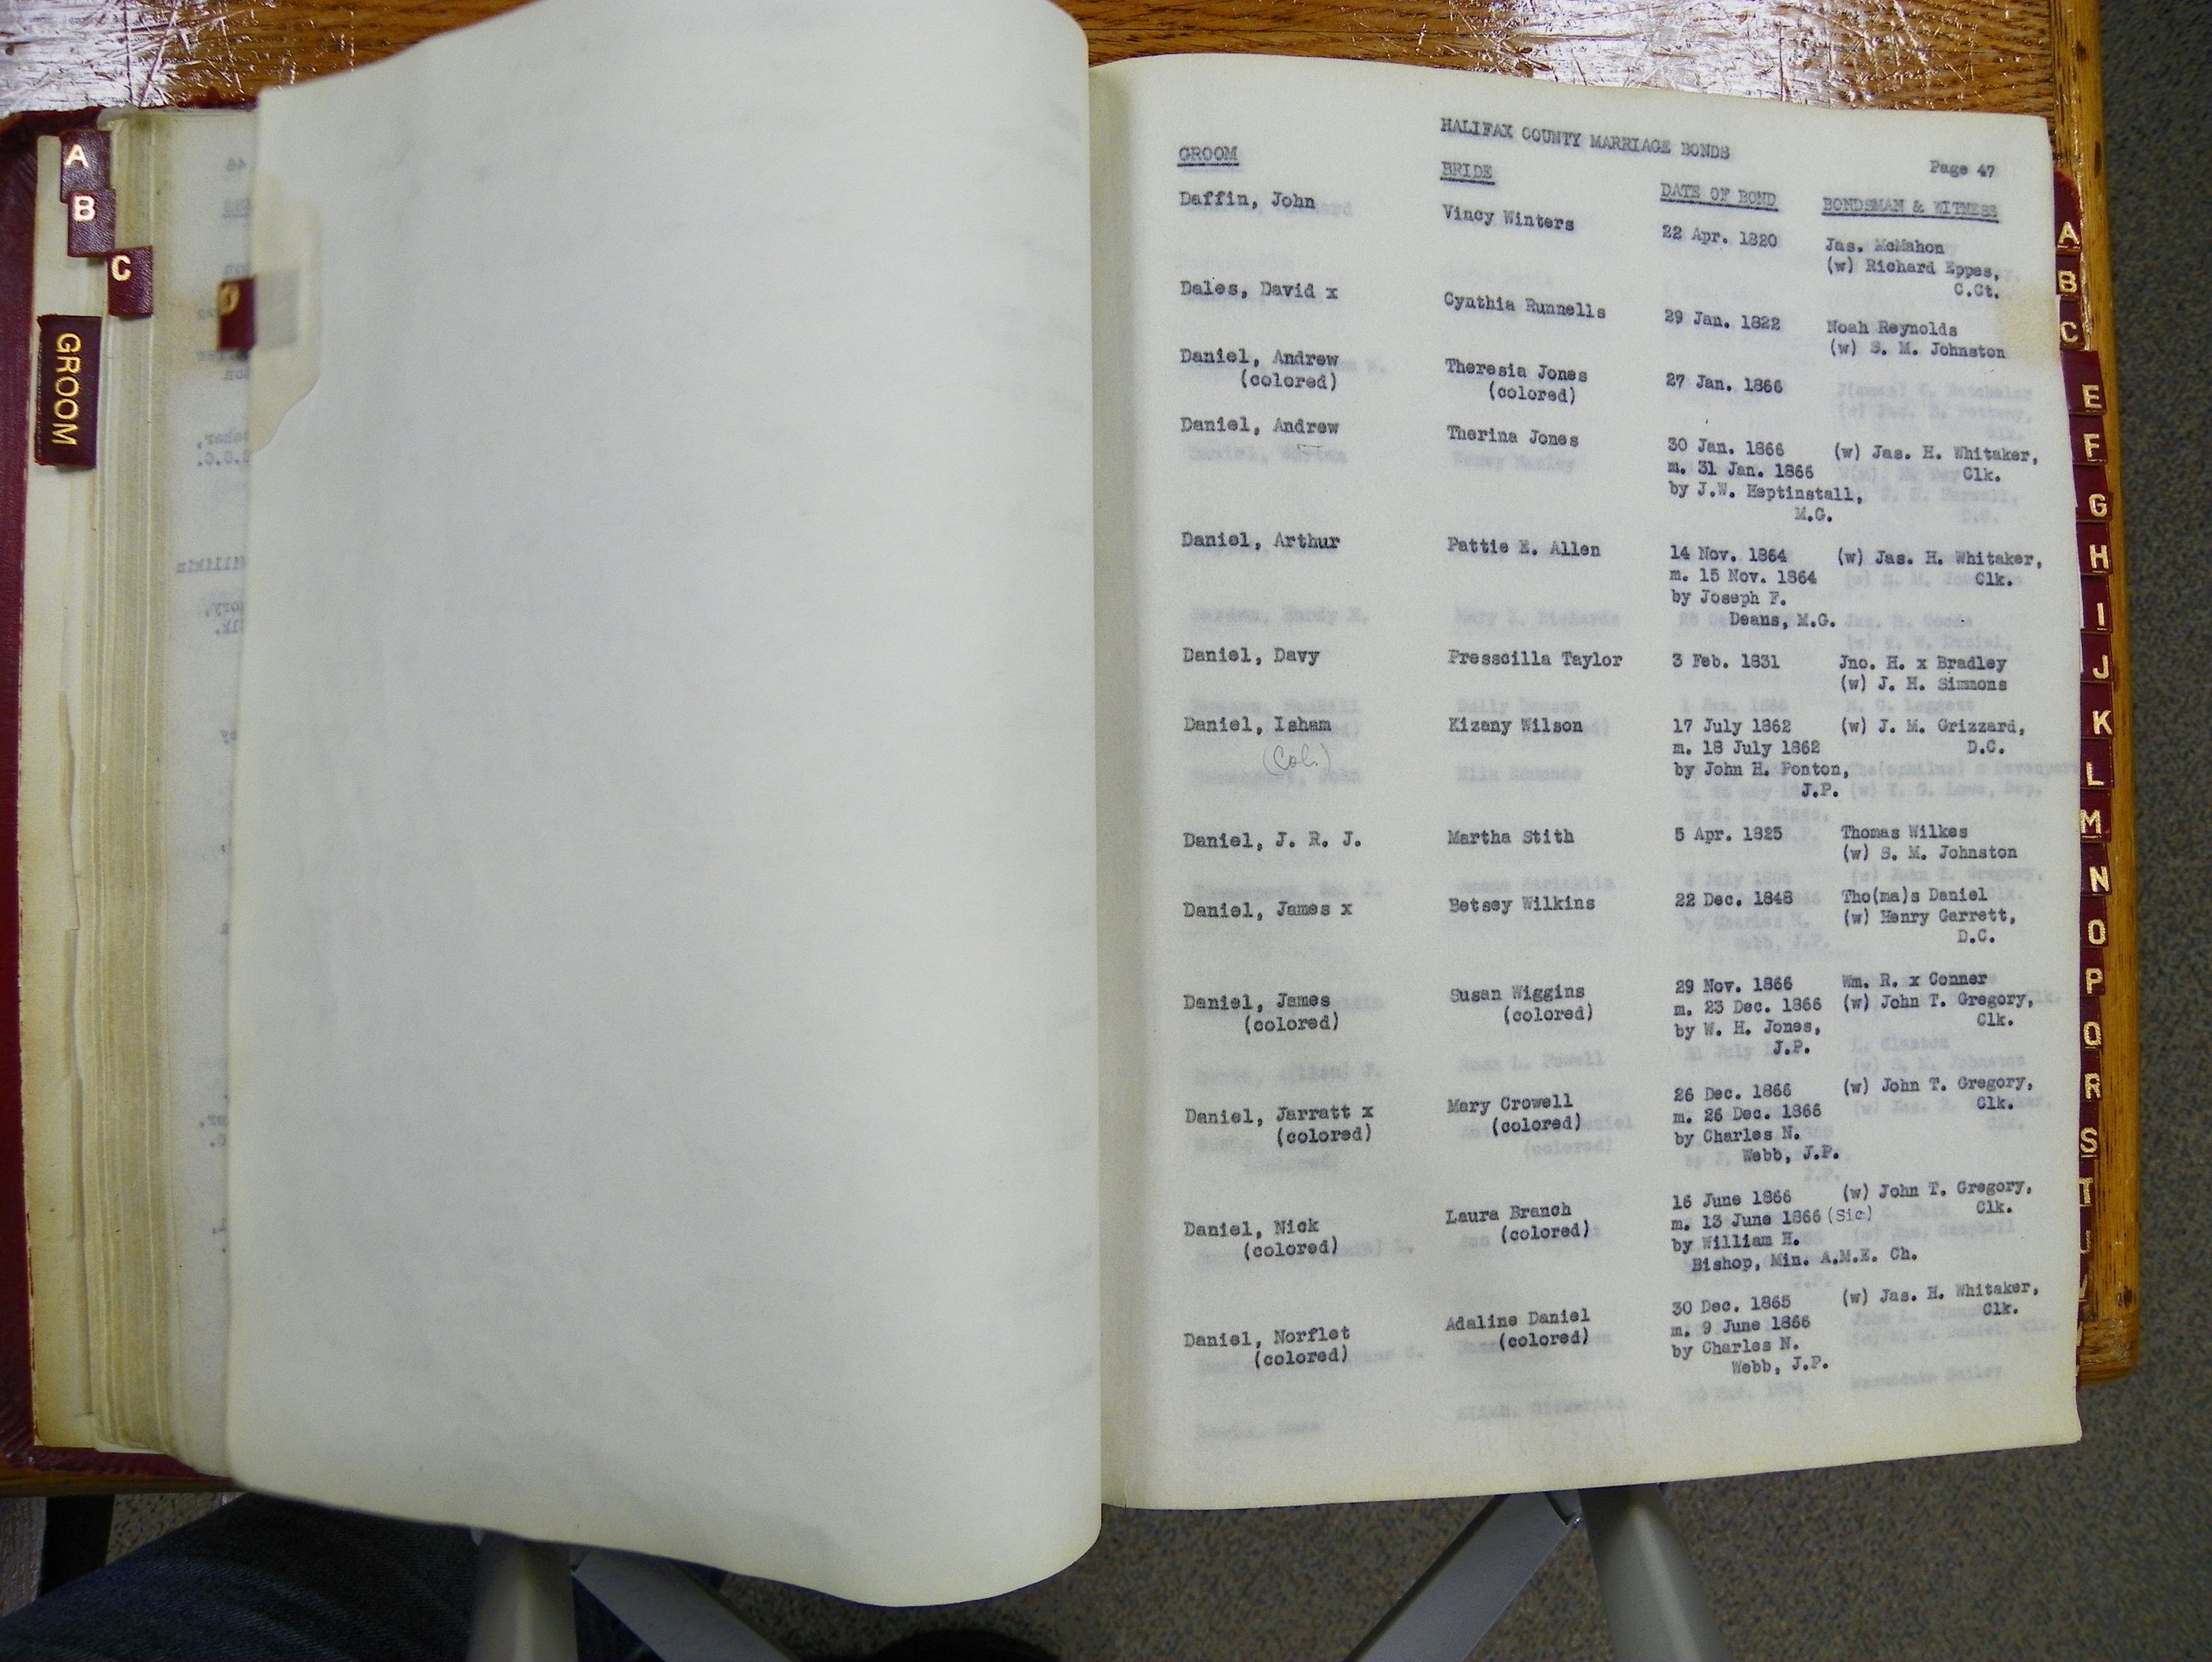 A
B
C
D
GROOM
HALIFAX COUNTY MARRIAGE BONDS
Page 47
GROOM BRIDE DATE OF BOND BONDSMAN & WITNESS
Daffin, John Vincy Winters 22 Apr. 1820 Jas. McMahon
(w) Richard Eppes,
C.Ct.
Dales, David x Cynthia Runnells 29 Jan. 1822 Noah Reynolds
(w) S. M. Johnston
Daniel, Andrew Theresia Jones 27 Jan. 1866
(colored) (colored)
Daniel, Andrew Therina Jones 30 Jan. 1866 (w) Jas. H. Whitaker,
m. 31 Jan. 1866 Clk.
by J.W. Heptinstall,
M.G.
Daniel, Arthur Pattie E. Allen 14 Nov. 1864 (w) Jas. H. Whitaker,
m. 15 Nov. 1864 Clk.
by Joseph F.
Deans, M.G.
Daniel, Davy Presscilla Taylor 3 Feb. 1831 Jno. H. x Bradley
(w) J. H. Simmons
Daniel, Isham Kizany Wilson 17 July 1862 (w) J. M. Grizzard,
(Col) m. 18 July 1862 D.C.
by John H. Ponton,
J.P.
Daniel, J. R. J. Martha Stith 5 Apr. 1825 Thomas Wilkes
(w) S. M. Johnston
Daniel, James x Betsey Wilkins 22 Dec. 1848 Tho(ma)s Daniel
(w) Henry Garrett,
D.C.
Daniel, James Susan Wiggins 29 Nov. 1866 Wm. R. x Conner
(colored) (colored) m. 23 Dec. 1866 (w) John T. Gregory,
by W. H. Jones, Clk.
J.P.
Daniel, Jarratt x Mary Crowell 26 Dec. 1866 (w) John T. Gregory,
(colored) (colored) m. 26 Dec. 1866 Clk.
by Charles N.
Webb, J.P.
Daniel, Nick Laura Branch 16 June 1866 (w) John T. Gregory,
(colored) (colored) m. 13 June 1866 (Sic) Clk.
by William H.
Bishop, Min. A.M.E. Ch.
Daniel, Norflet Adaline Daniel 30 Dec. 1865 (w) Jas. H. Whitaker,
(colored) (colored) m. 9 June 1866 Clk.
by Charles N.
Webb, J.P.
A
B
C
E
F
G
H
I
J
K
L
M
N
O
P
Q
R
S
T